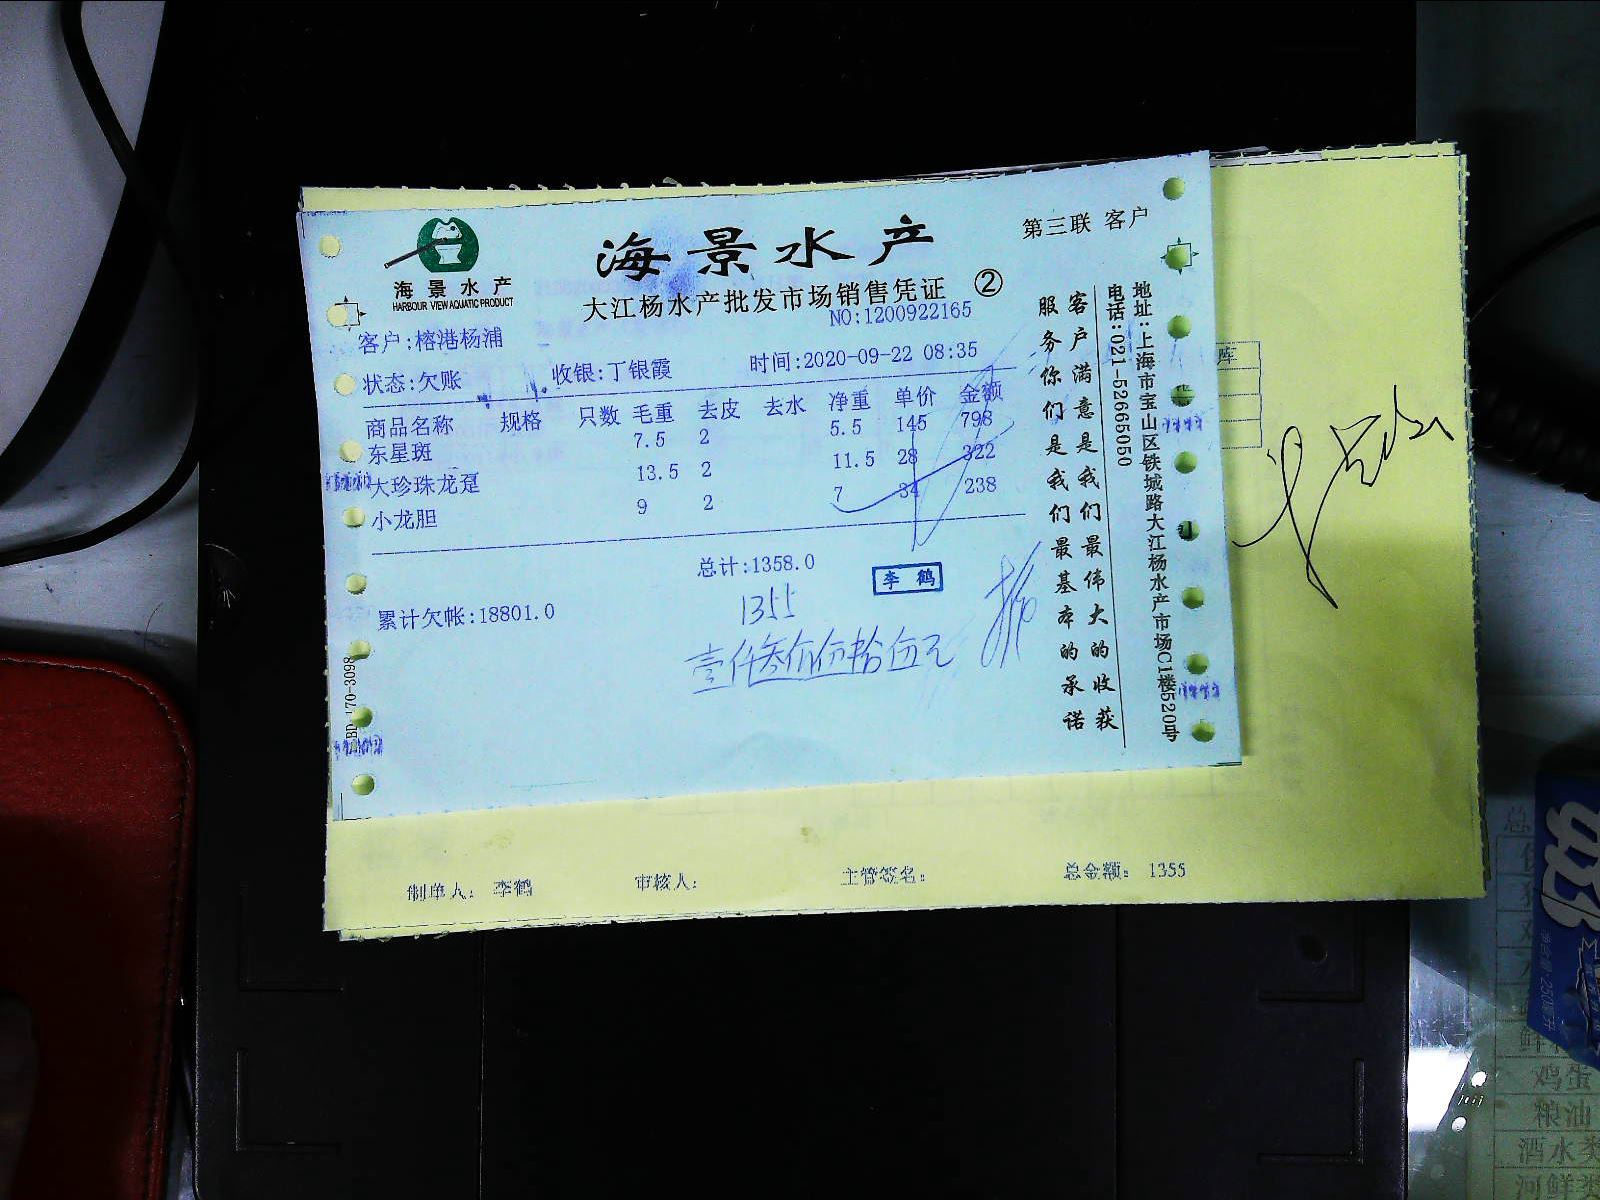 海景水产
HARBOUR VIEW AQUATIC PRODUCT
海景水产
第三联 客户
大江杨水产批发市场销售凭证 ②
NO:1200922165
客户:榕港杨浦
状态:欠账 收银:丁银霞 时间:2020-09-22 08:35
商品名称 规格 只数 毛重 去皮 去水 净重 单价 金额
东星斑 7.5 2 5.5 145 798
大珍珠龙趸 13.5 2 11.5 28 322
小龙胆 9 2 7 34 238
总计:1358.0
李鹤
累计欠帐:18801.0
1355
客户满意是我们最伟大的收获
服务你们是我们最基本的承诺
地址:上海市宝山区铁城路大江杨水产市场C1楼520号
电话:021-52665050
170-3098
库
制单人: 李鹤 审核人: 主管签名: 总金额: 1355
净含量:250毫升
鸡蛋
粮油
酒水类
河鲜类